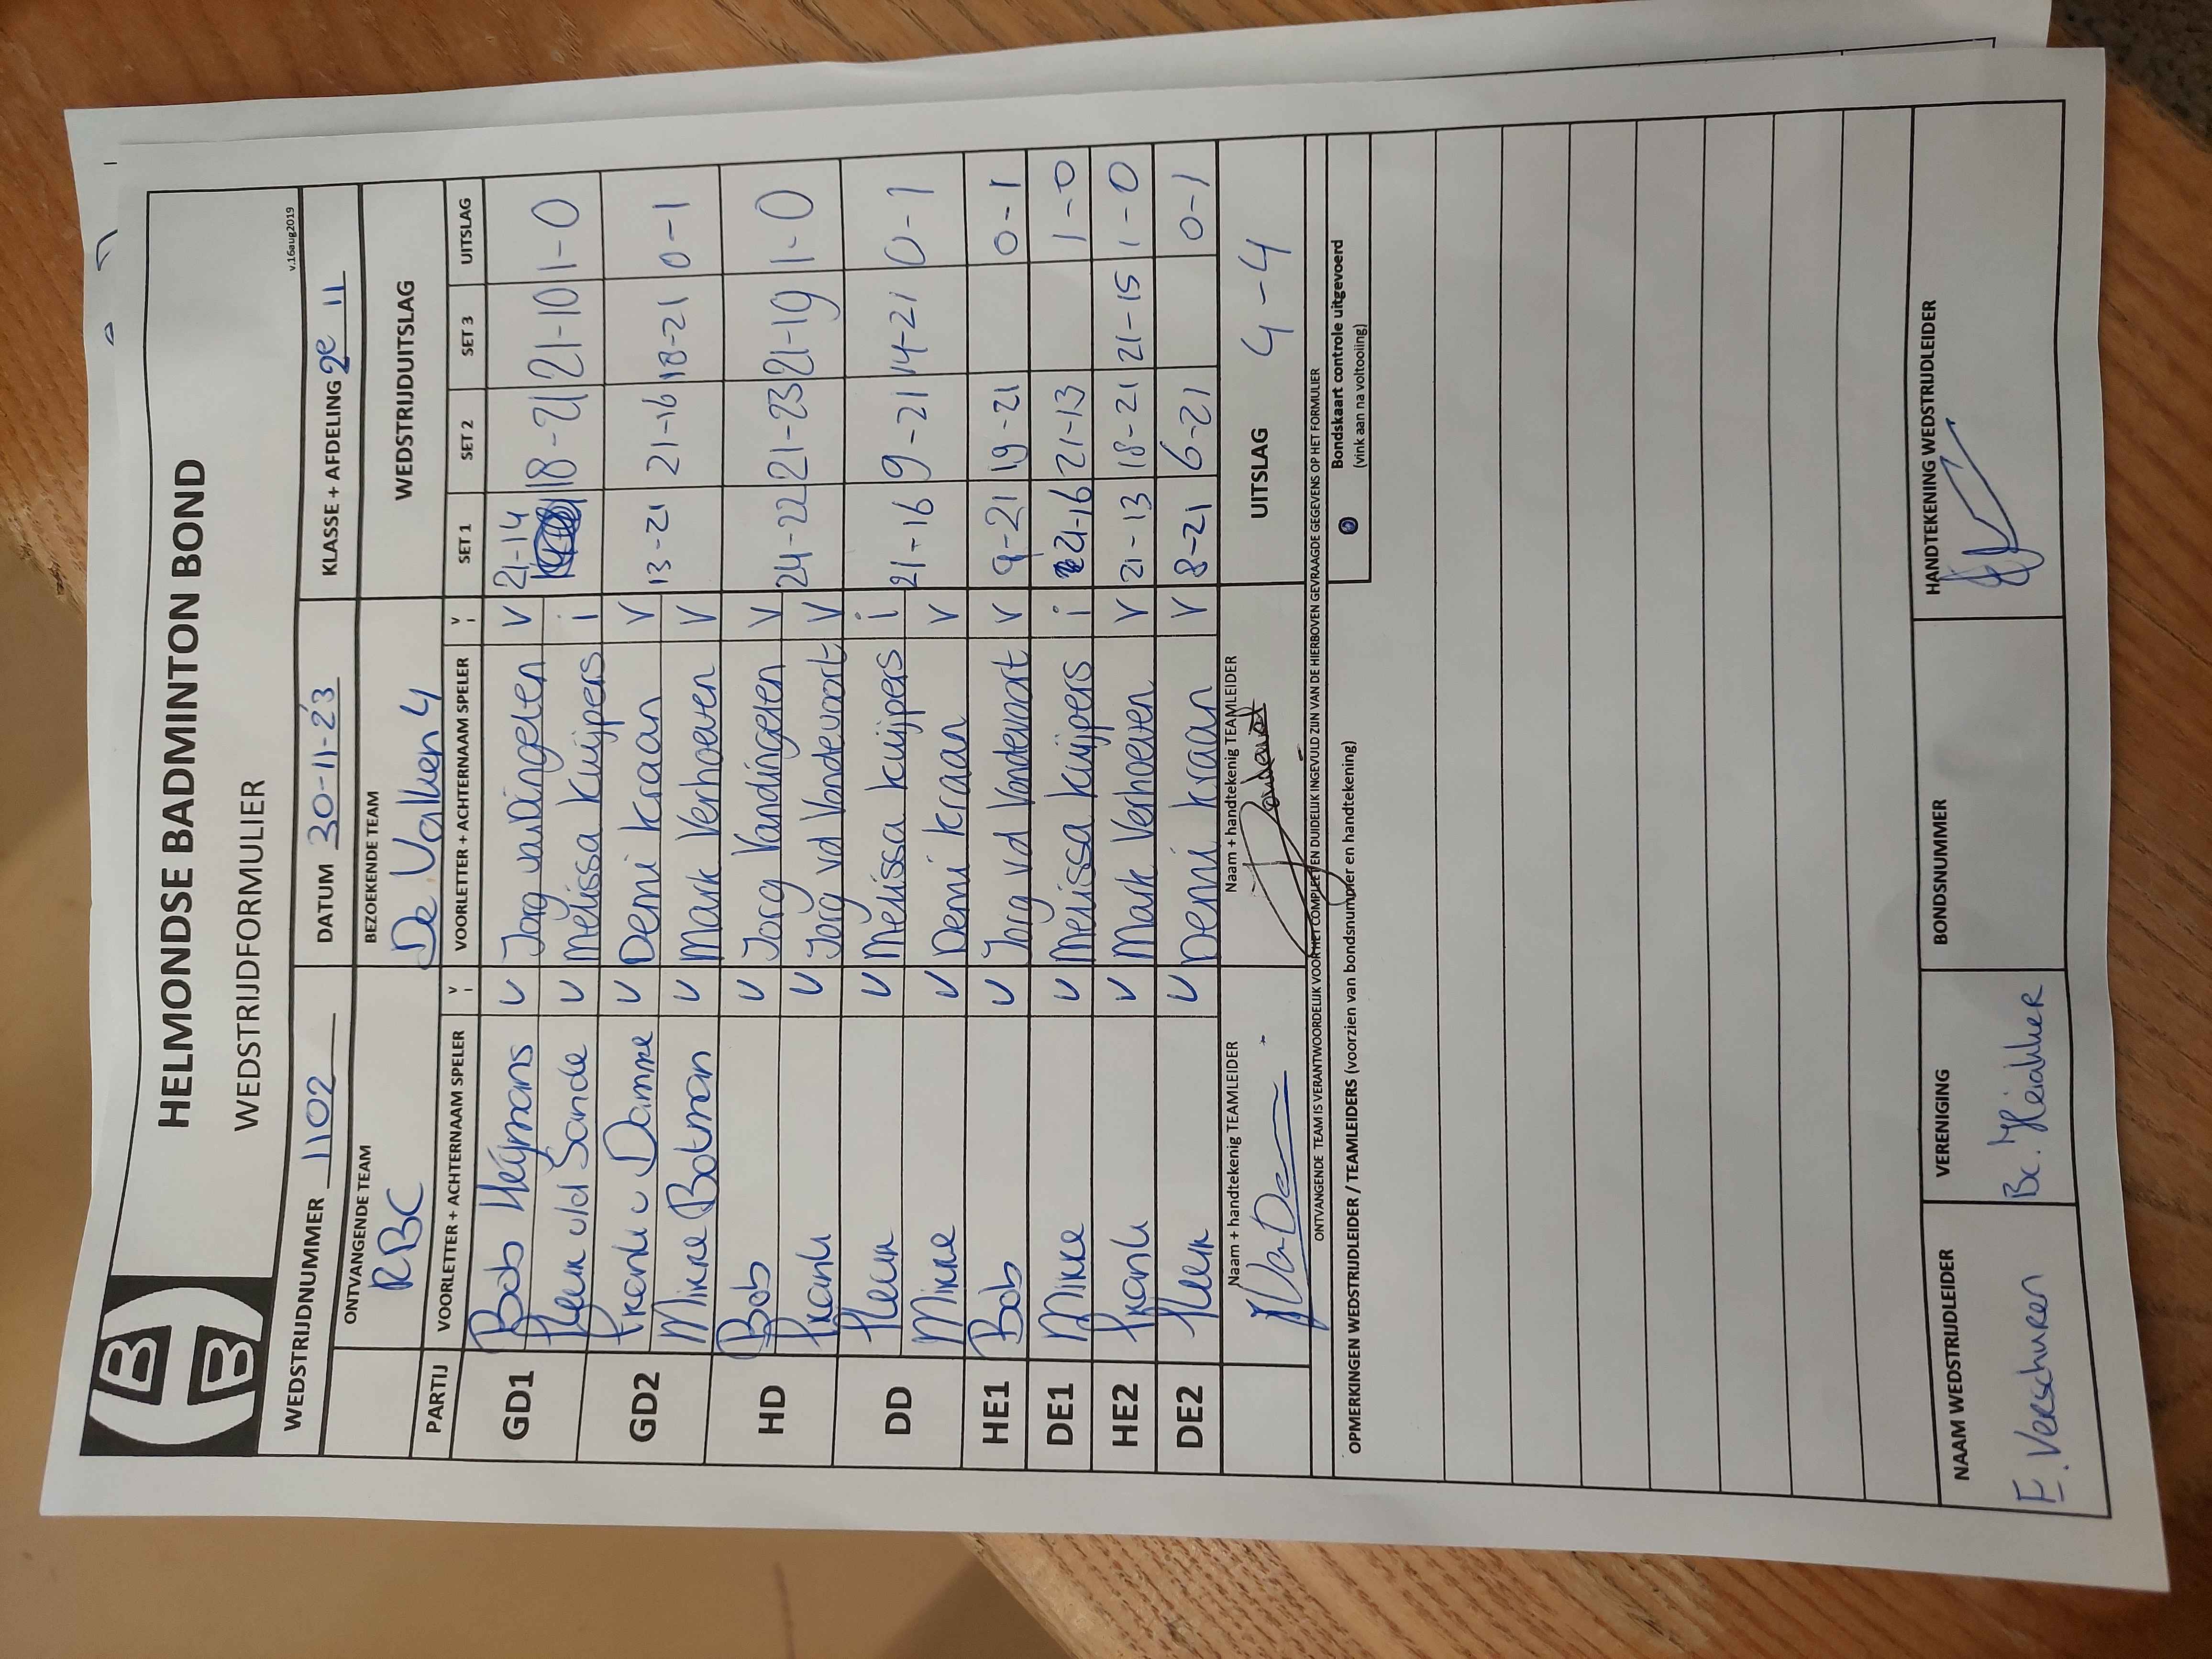 HELMONDSE BADMINTON BOND
WEDSTRIJDFORMULIER
v.16aug2019
WEDSTRIJDNUMMER 1102 DATUM 30-11-23 KLASSE + AFDELING 2e 11
ONTVANGENDE TEAM BEZOEKENDE TEAM WEDSTRIJDUITSLAG
RBC De Valken 4
PARTIJ VOORLETTER + ACHTERNAAM SPELER V i VOORLETTER + ACHTERNAAM SPELER V i SET 1 SET 2 SET 3 UITSLAG
GD1 Bob Heijmans v Jorg van Dingelen V 21-14 18-21 21-10 1-0
Fleur vld Sande v Melissa Kuijpers i
GD2 Frank v Damme v Demi Kraan V 13-21 21-16 18-21 0-1
Minke Botman v Mark Verhoeven V
HD Bob v Jorg Vandingelen V 24-22 21-23 21-19 1-0
Frank v Jorg vd Vondevoort V
DD Fleur v Melissa Kuijpers i 21-16 9-21 14-21 0-1
Minke v Demi Kraan V
HE1 Bob v Jorg vd Vondevoort V 9-21 19-21 0-1
DE1 Minke v Melissa Kuijpers i 21-16 21-13 1-0
HE2 Frank v Mark Verhoeven V 21-13 18-21 21-15 1-0
DE2 Fleur v Demi Kraan V 8-21 6-21 0-1
Naam + handtekenig TEAMLEIDER Naam + handtekenig TEAMLEIDER UITSLAG 4-4
ONTVANGENDE TEAM IS VERANTWOORDELIJK VOOR HET COMPLEET EN DUIDELIJK INGEVULD ZIJN VAN DE HIERBOVEN GEVRAAGDE GEGEVENS OP HET FORMULIER
OPMERKINGEN WEDSTRIJDLEIDER / TEAMLEIDERS (voorzien van bondsnummer en handtekening)
Bondskaart controle uitgevoerd
(vink aan na voltooiing)
NAAM WEDSTRIJDLEIDER VERENIGING BONDSNUMMER HANDTEKENING WEDSTRIJDLEIDER
E. Verschuren Bc. Mierlo